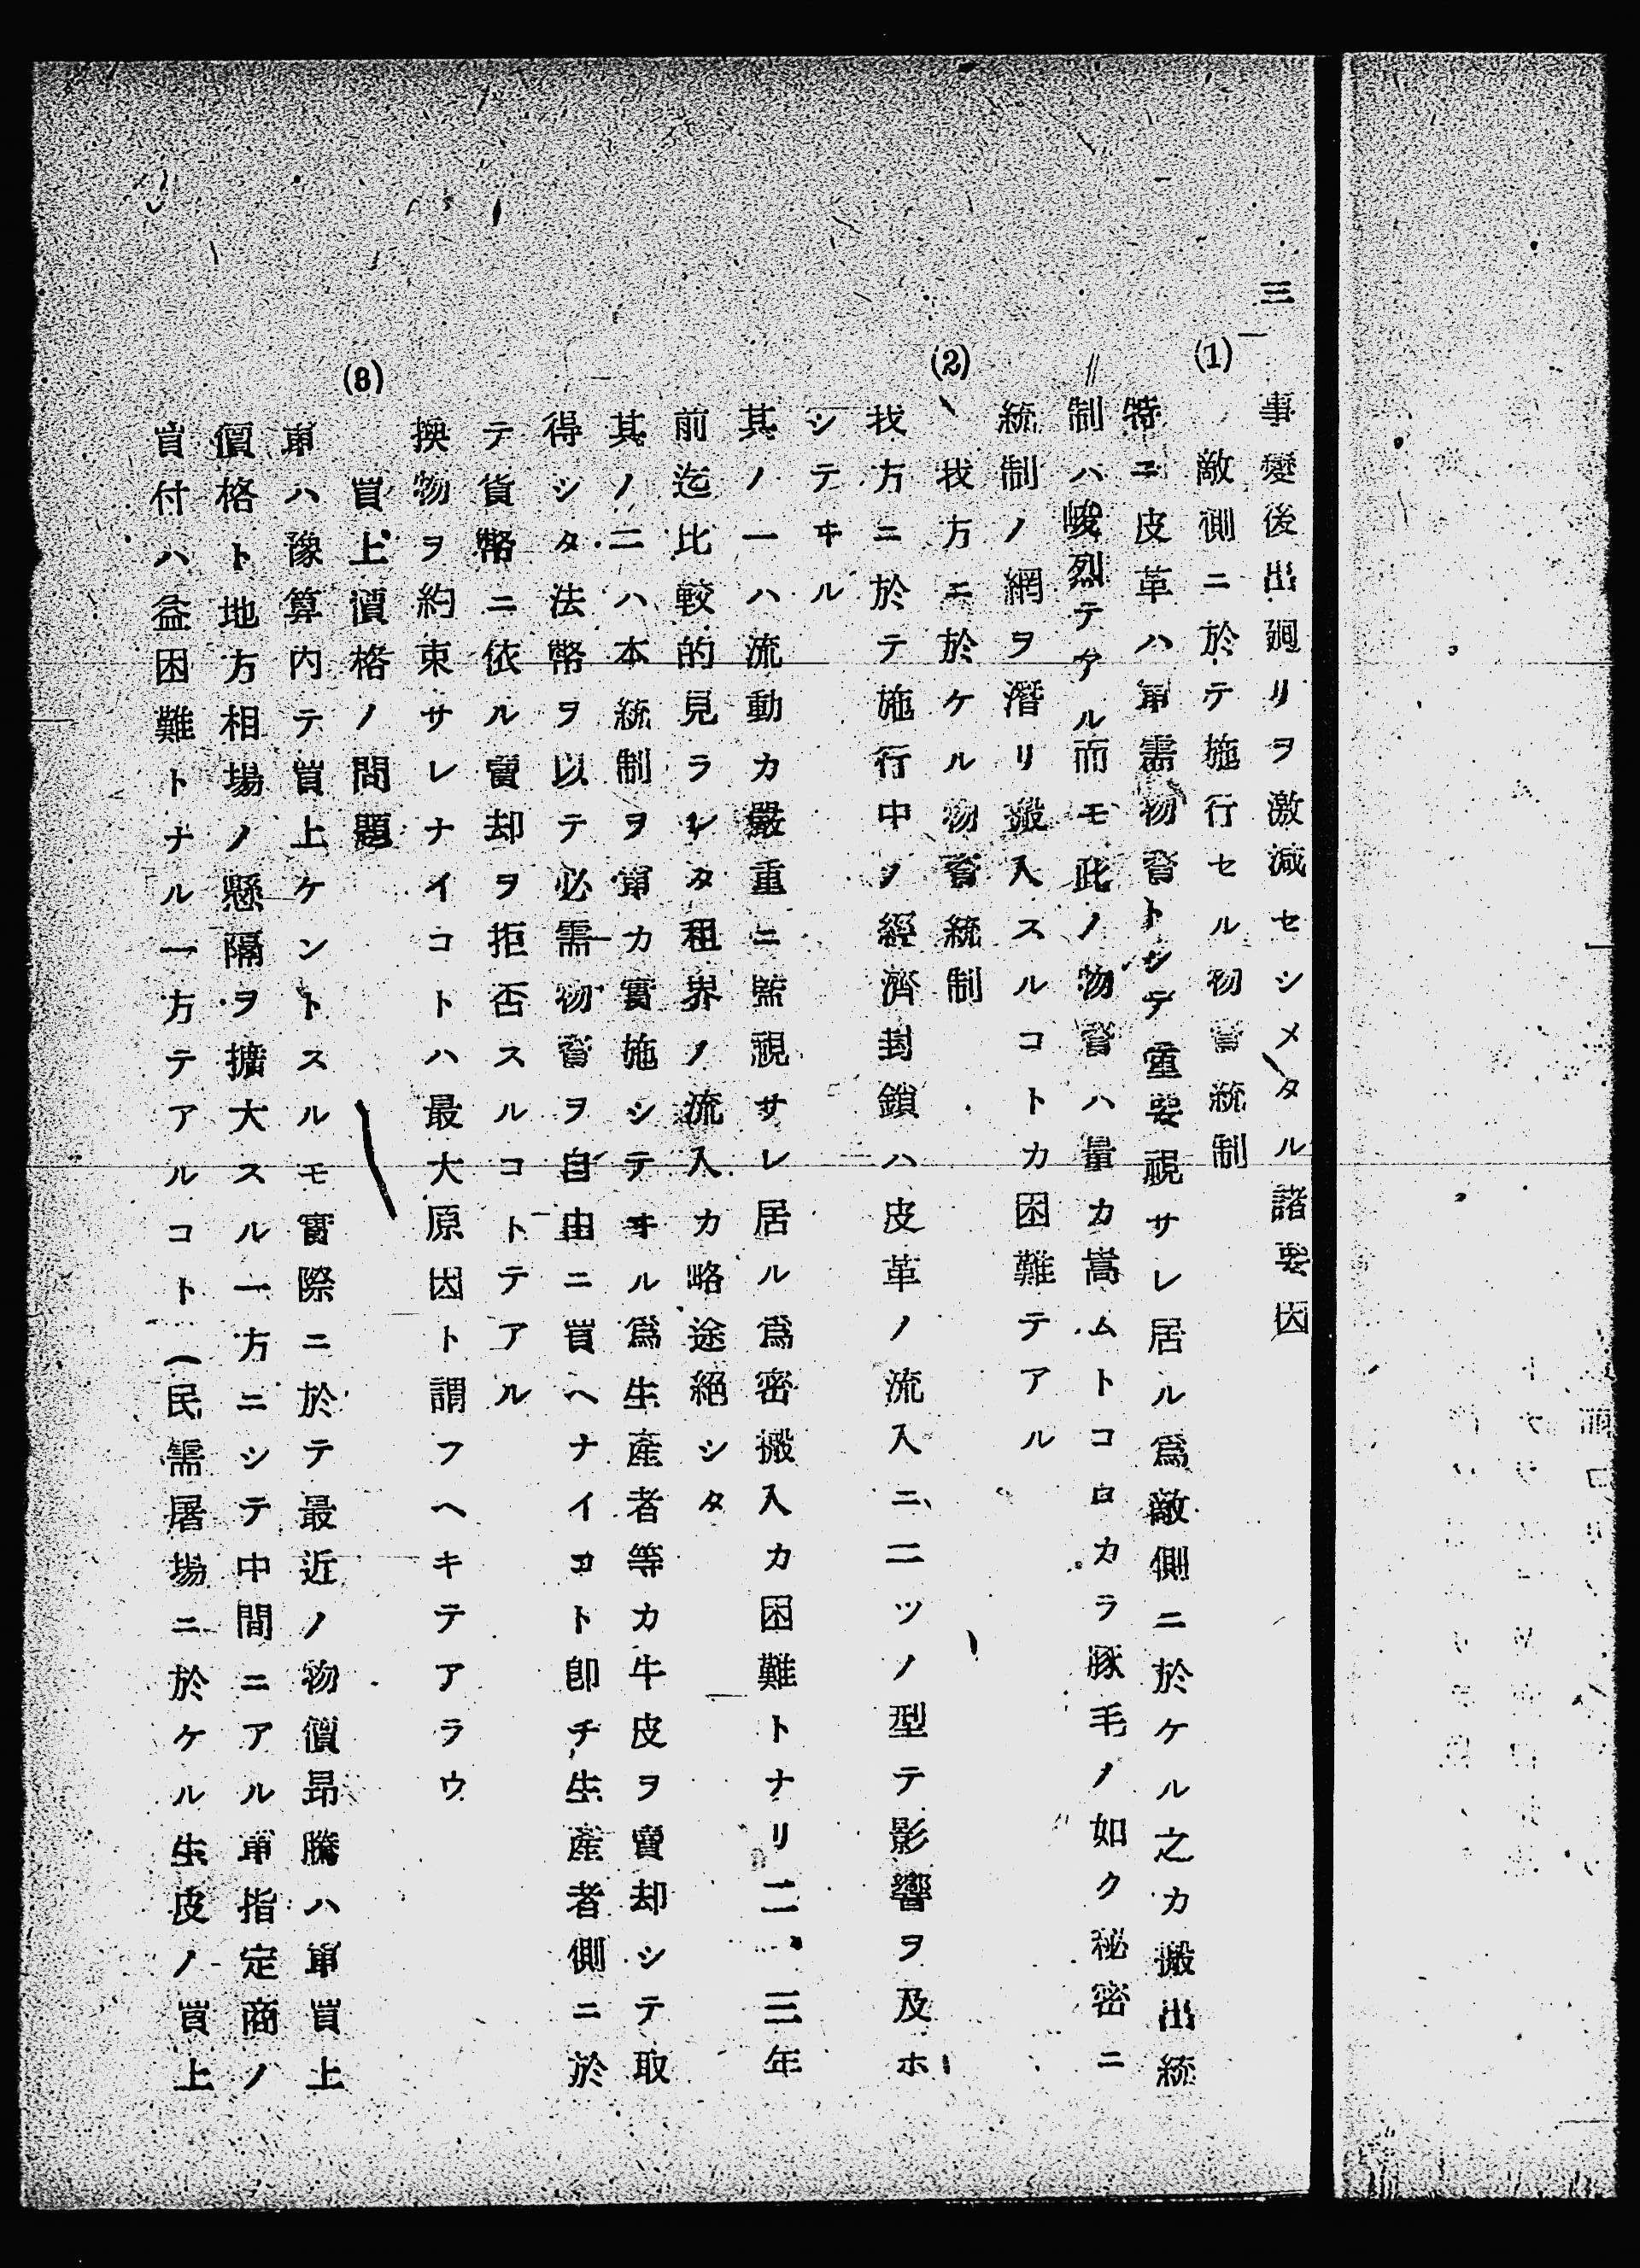 三 事變後出廻リヲ激減セシメタル諸要因
(1) 敵側ニ於テ施行セル物資統制
特ニ皮革ハ軍需物資トシテ重要視サレ居ル爲敵側ニ於ケル之カ搬出統
制ハ峻烈テアル而モ此ノ物資ハ量カ嵩ムトコロカラ豚毛ノ如ク秘密ニ
統制ノ網ヲ潛リ搬入スルコトカ困難テアル
(2) 我方ニ於ケル物資統制
我方ニ於テ施行中ノ經濟封鎖ハ皮革ノ流入ニ、二ツノ型テ影響ヲ及ホ
シテヰル
其ノ一ハ流動カ嚴重ニ監視サレ居ル爲密搬入カ困難トナリ二、三年
前迄比較的見ラレタ租界ノ流入カ略途絕シタ
其ノ二ハ本統制ヲ軍カ實施シテヰル爲生產者等カ牛皮ヲ賣却シテ取
得シタ法幣ヲ以テ必需物資ヲ自由ニ買ヘナイコト卽チ生產者側ニ於
テ貨幣ニ依ル賣却ヲ拒否スルコトテアル
換物ヲ約束サレナイコトハ最大原因ト謂フヘキテアラウ
(3) 買上價格ノ問題
軍ハ豫算内テ買上ケントスルモ實際ニ於テ最近ノ物價昂騰ハ軍買上
價格ト地方相場ノ懸隔ヲ擴大スル一方ニシテ中間ニアル軍指定商ノ
買付ハ益困難トナル一方テアルコト(民需屠場ニ於ケル生皮ノ買上